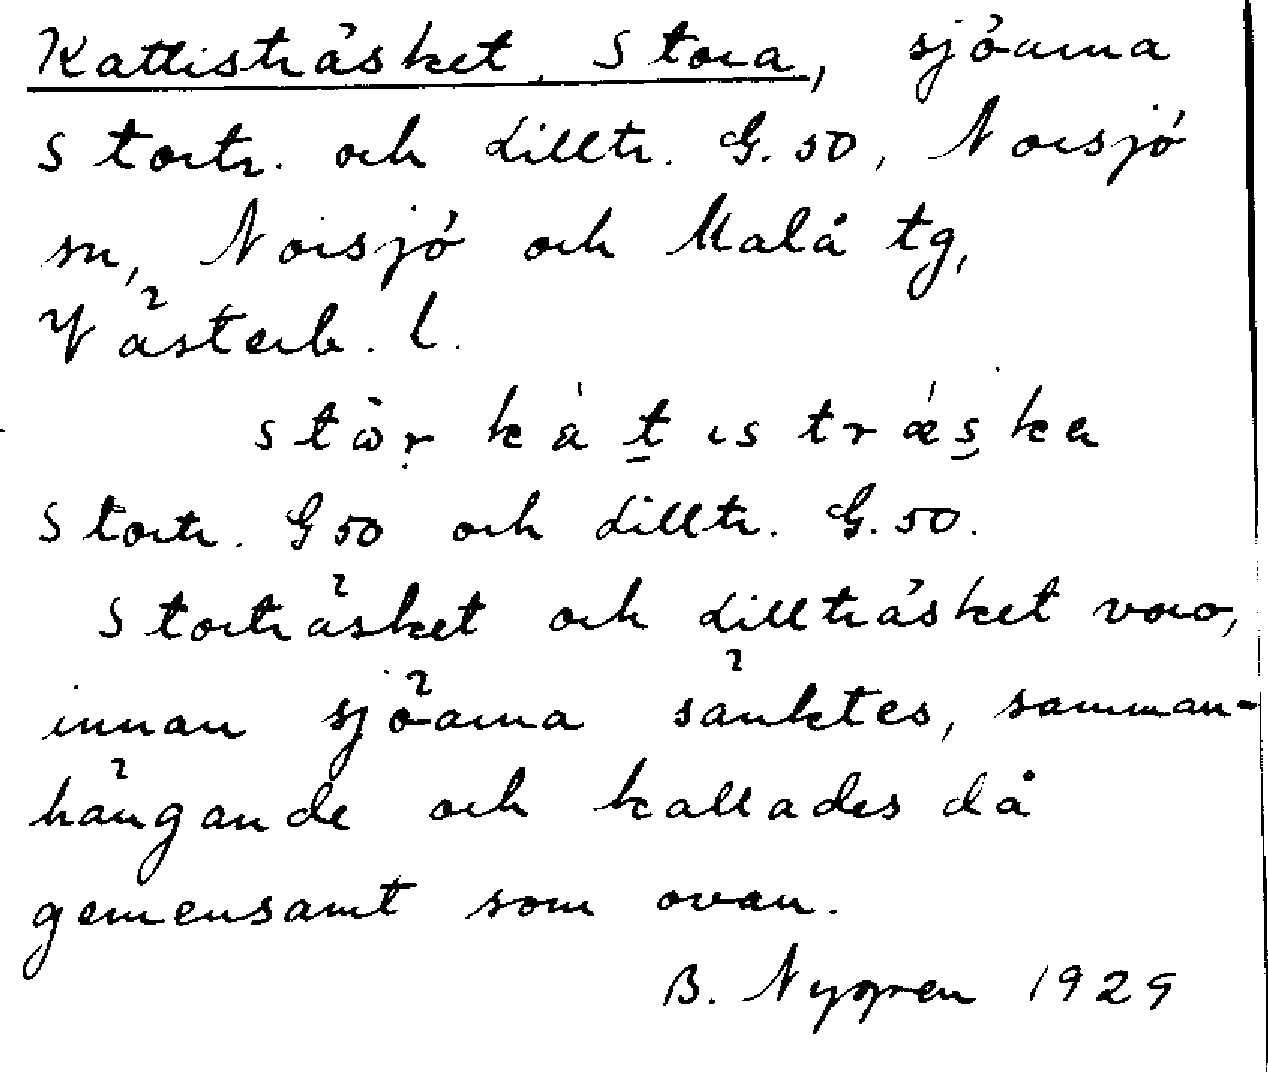 Kattisträsket, Stora, sjöarna
Stortr. och Lilltr. G. 50, Norsjö
sn, Norsjö och Malå tg,
Västerb. l.
stōr kátıstrǽska
Stortr. G 50 och Lilltr. G. 50.
Storträsket och Lillträsket voro,
innan sjöarna sänktes, samman-
hängande och kallades då
gemensamt som ovan.
B. Nygren 1929